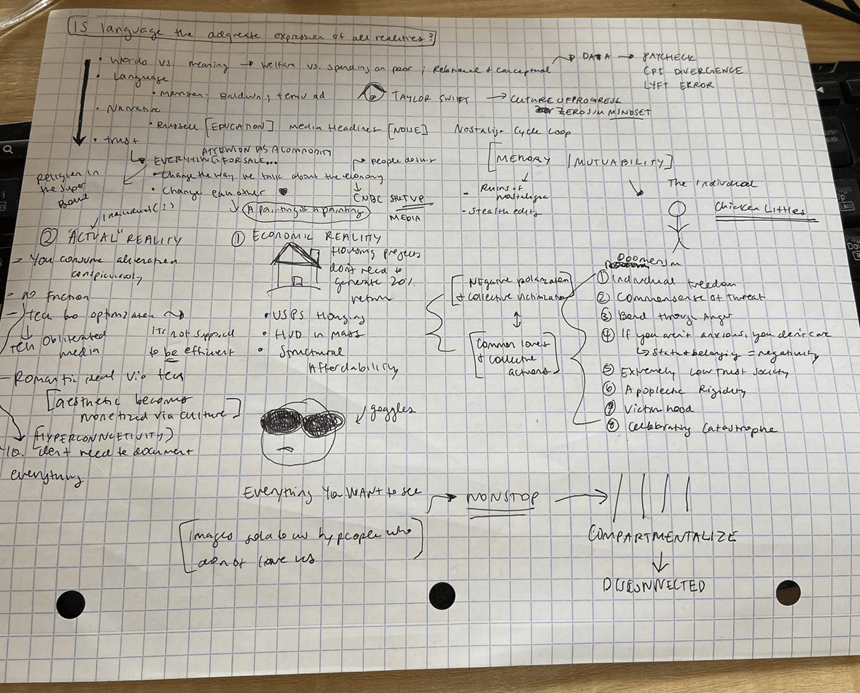 IS language the aggreate expression of all realities?
• Words vs. meaning → welfare vs. spending on poor ; Relational + conceptual
→ DATA → PAYCHECK
CPI DIVERGENCE
LYFT ERROR
• Language
• Baldwin ; temu ad
TAYLOR SWIFT → CULTURE OF PROGRESS
ZEROSUM MINDSET
• Narrative
• Russell [EDUCATION] Media Headlines [NOISE]
Nostalgia Cycle Loop
• Trust
ATTENTION AS A COMMODITY
EVERYTHING FOR SALE...
• Change the way we talk about the economy
• Change each other
people
CNBC SHUTUP
MEDIA
A painting of a painting
Religion in
the Super
Bowl
[MEMORY | MUTUABILITY]
- Ruins of
nostalgia
- Stealth edits
The Individual
Chicken Littles
individual(?)
② "ACTUAL" REALITY
- You consume alienation
conspicuously
- no friction
- Tech too optimization
Tech Obliterated
media
it's not supposed
to be efficient
- Romantic ideal via tech
[aesthetic becomes
monetized via culture]
[HYPERCONNCETIVITY]
dont need to document
everything
① ECONOMIC REALITY
Housing projects
dont need to
generate 20%
return
• USPS Hanging
• HUD in Mass
• Structural
Affordability
goggles
[Negative polarization
+ collective victimization]
[Common loves
+ collective
actions]
Doomerism
① Individual freedom
② Commonsense of threat
③ Bond through Anger
④ If you aren't anxious, you don't care
↳ status + belonging = negativity
⑤ Extremely low trust society
⑥ Apoplectic Rigidity
⑦ Victimhood
⑧ Celebrating Catastrophe
Everything You WANT to see → NONSTOP →
[Images sold to us by people who
do not love us]
COMPARTMENTALIZE
↓
DISCONNECTED